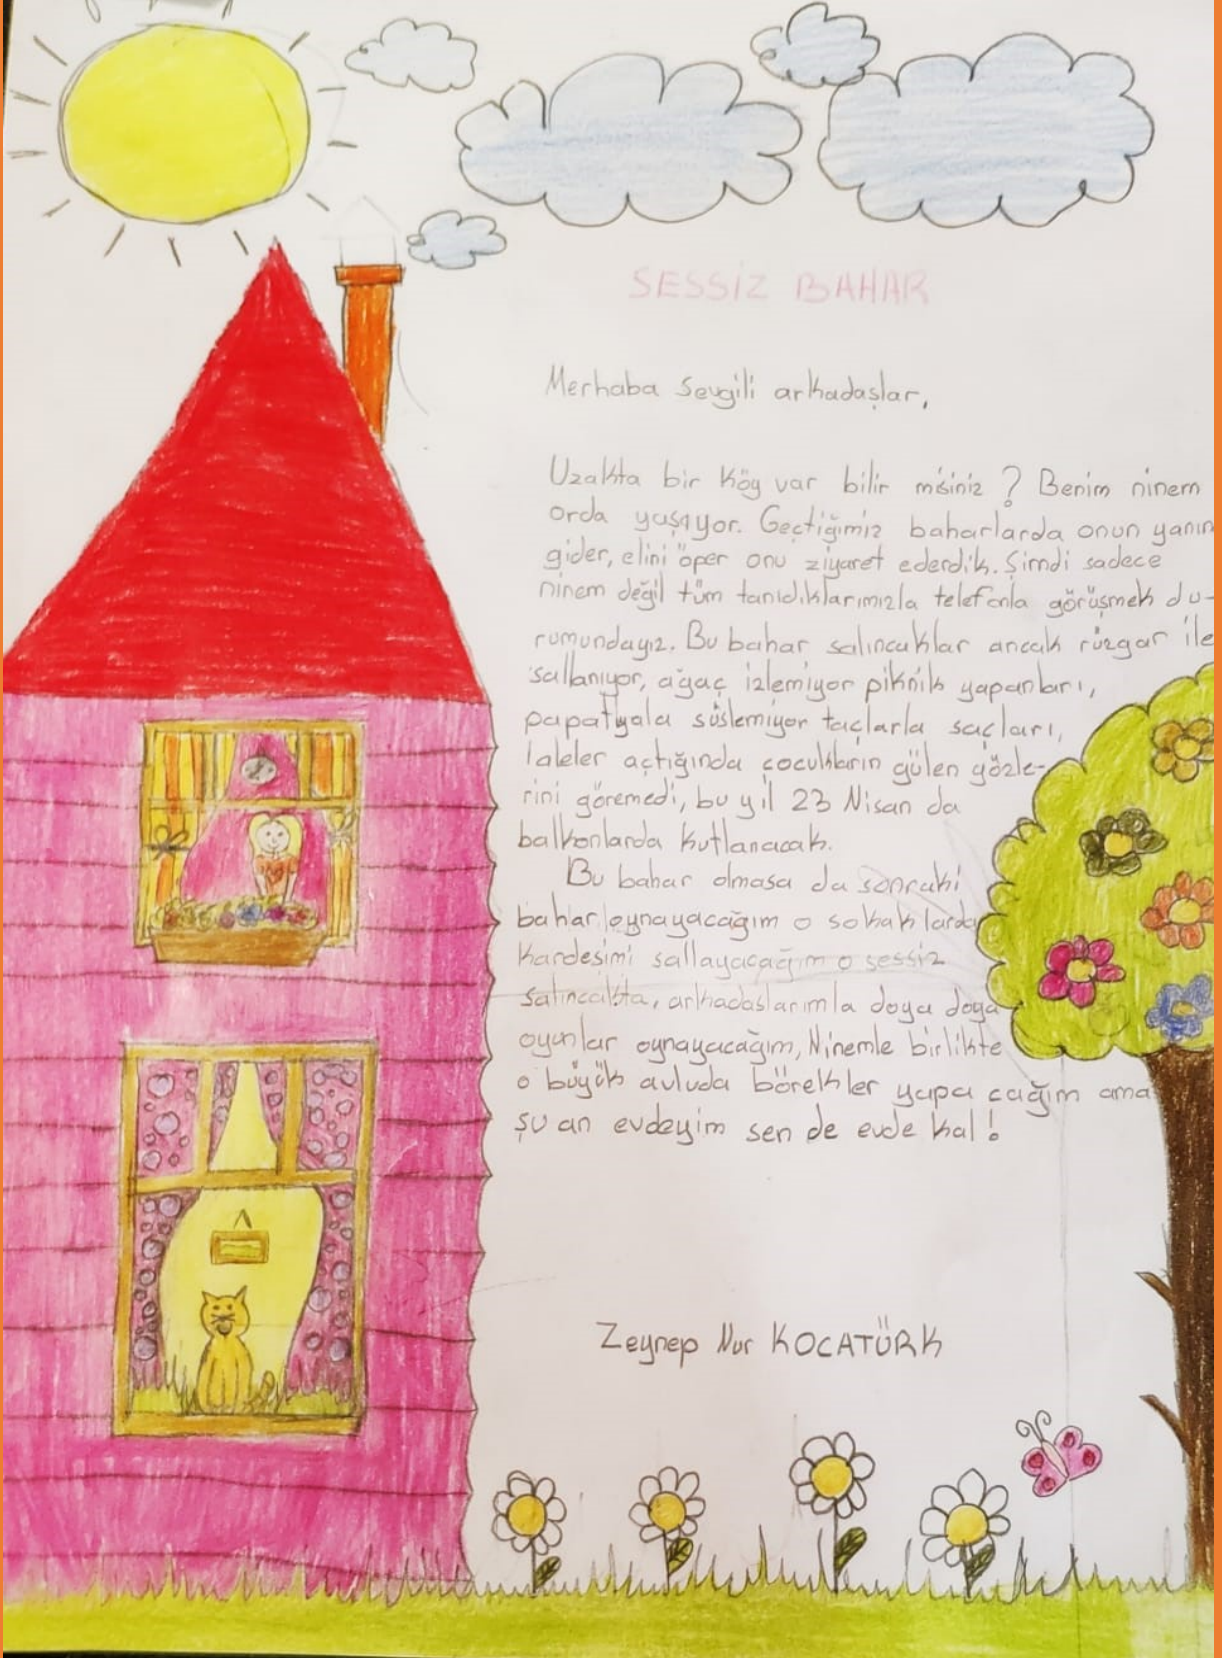 SESSİZ BAHAR
Merhaba sevgili arkadaşlar,
Uzakta bir köy var bilir misiniz ? Benim ninem
orda yaşıyor. Geçtiğimiz baharlarda onun yanın
gider, elini öper onu ziyaret ederdik. Şimdi sadece
ninem değil tüm tanıdıklarımızla telefonla görüşmek du-
rumundayız. Bu bahar salıncaklar ancak rüzgar ile
sallanıyor, ağaç izlemiyor piknik yapanları,
papatyala süslemiyor taçlarla saçları,
laleler açtığında çocukların gülen gözle-
rini göremedi, bu yıl 23 Nisan da
balkonlarda kutlanacak.
Bu bahar olmasa da sonraki
bahar oynayacağım o sokaklarda
kardeşimi sallayacağım o sessiz
salıncakta, arkadaşlarımla doya doya
oyunlar oynayacağım, Ninemle birlikte
o büyük avluda börekler yapa cağım ama
şu an evdeyim sen de evde kal !
Zeynep Nur KOCATÜRK